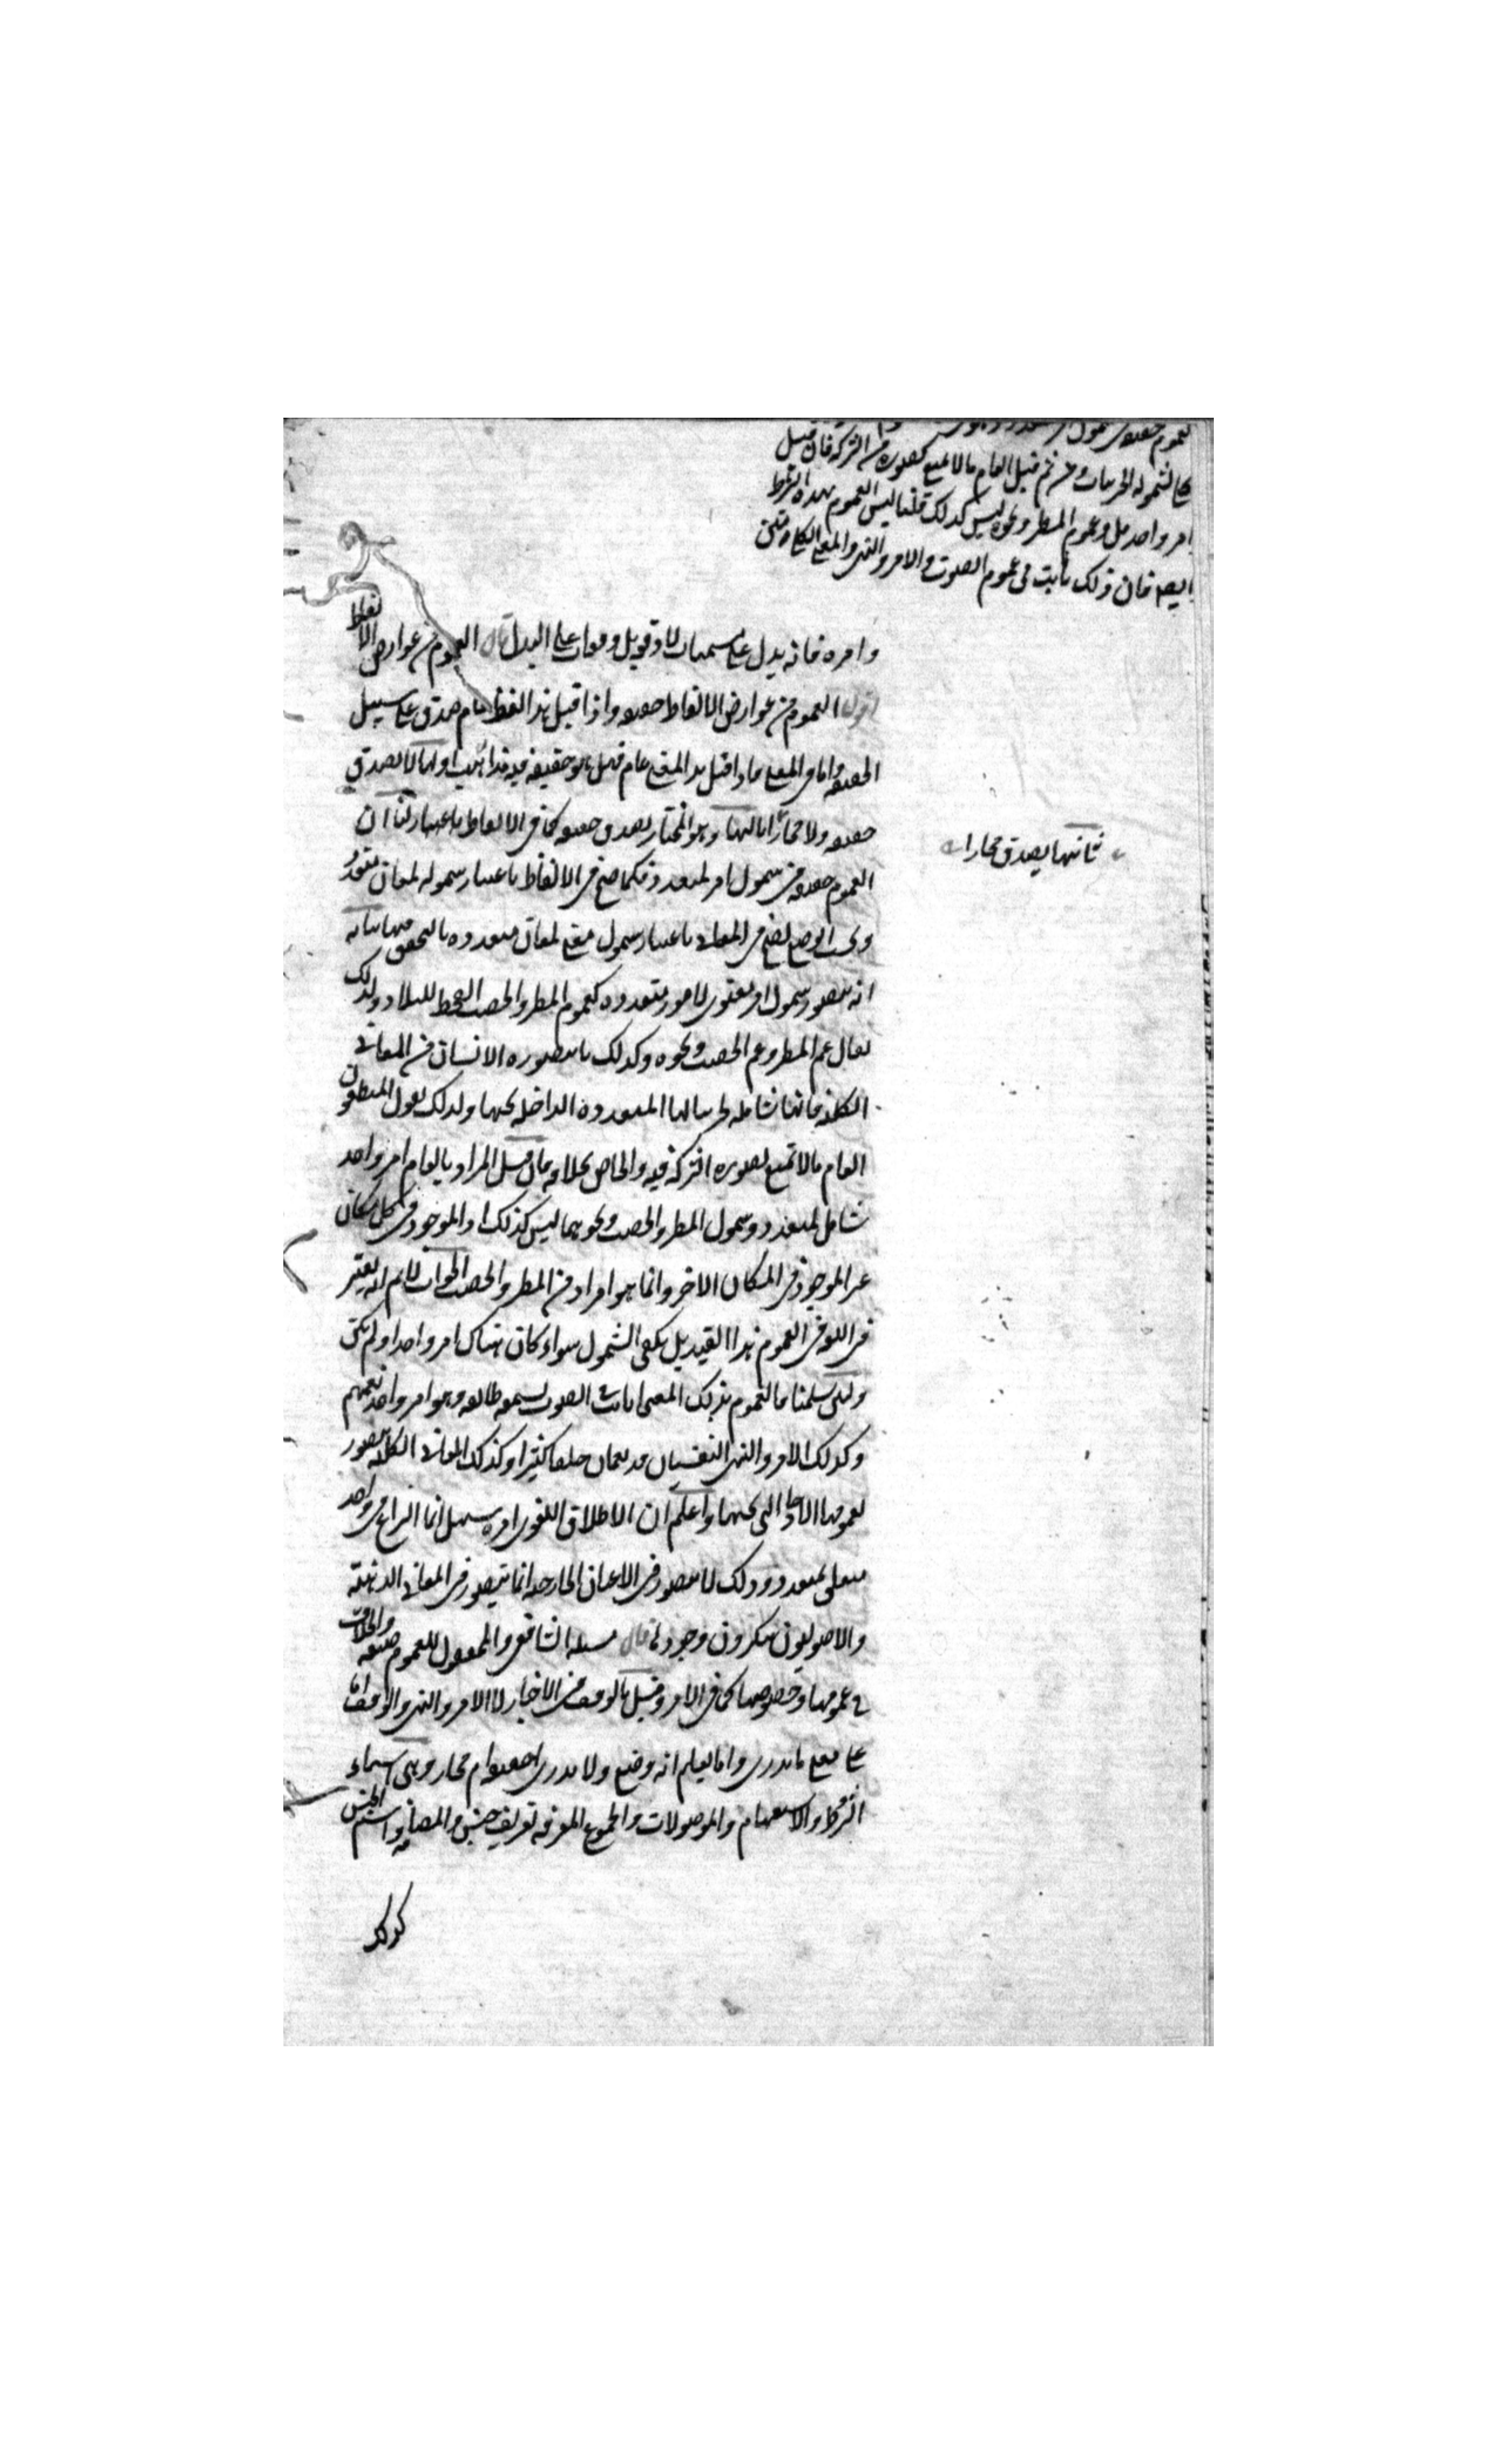 العموم حقيقة في شمول
لشموله الجزئيات ومن ثم قيل العام ما لا يمنع تصوره من الشركة فان قيل
امر واحد شمل وعموم المطر ونحوه ليس كذلك قلنا ليس العموم بهذا الشرط
ايضا فان ذلك ثابت في عموم الصوت والامر والنهي والمعنى الكلي
وامرءة فانه يدل على مسميات لا دفعة بل دفعات على البدل قال العموم من عوارض الالفاظ
اقول العموم من عوارض الالفاظ حقيقة واذا قيل هذا لفظ عام صدق على سبيل
الحقيقة واما في المعنى فاذا قيل هذا المعنى عام فهل هو حقيقة فيه مذاهب اولها لا يصدق
حقيقة ولا مجازا ثالثها وهو المختار يصدق حقيقة كما في الالفاظ لنا ان
ثانيها يصدق مجازا
العموم حقيقة في شمول امر لمتعدد فكما صح في الالفاظ باعتبار شموله لمعان متعددة
بحسب الوضع صح في المعاني باعتبار شمول معنى لمعان متعددة بالتحقق فيها بيانه
انه يتصور شمول امر معنوي لامور متعددة كعموم المطر والخصب والقحط للبلاد ولذلك
يقال عم المطر وعم الخصب ونحوه وكذلك ما يتصوره الانسان من المعاني
الكلية فانها شاملة لجزئياتها المتعددة الداخلة تحتها ولذلك يقول المنطقيون
العام ما لا يمنع تصوره الشركة فيه والخاص بخلافه فان قيل المراد بالعام امر واحد
شامل لمتعدد وشمول المطر والخصب ونحوهما ليس كذلك اذ الموجود في كل مكان
غير الموجود في المكان الاخر وانما هو افراد من المطر والخصب الجواب لا نسلم انه يعتبر
في اللغة في العموم هذا القيد بل يكفي الشمول سواء كان هناك امر واحد او لم يكن
ولئن سلمنا فالعموم بذلك المعنى ثابت الصوت يسمعه طائفة وهو امر واحد يعمهم
وكذلك الامر والنهي النفسيان قد يعمان خلقا كثيرا وكذلك المعاني الكلية يتصور
عمومها الاحاد التي تحتها واعلم ان الاطلاق اللغوي امره سهل انما النزاع في واحد
متعلق بمتعدد وذلك لا يتصور في الاعيان الخارجة انما يتصور في المعاني الذهنية
والاصوليون ينكرون وجودها قال مسئلة الشافعي والمحققون للعموم صيغة والخلاف
في عمومها وخصوصها كما في الامر وقيل بالوقف في الاخبار لا الامر والنهي والوقف اما
على معنى ما ندري واما نعلم انه وضع ولا ندري احقيقة ام مجاز وهي اسماء
الشرط والاستفهام والموصولات والجموع المعرفة تعريف جنس والمضافة واسم الجنس
كذلك